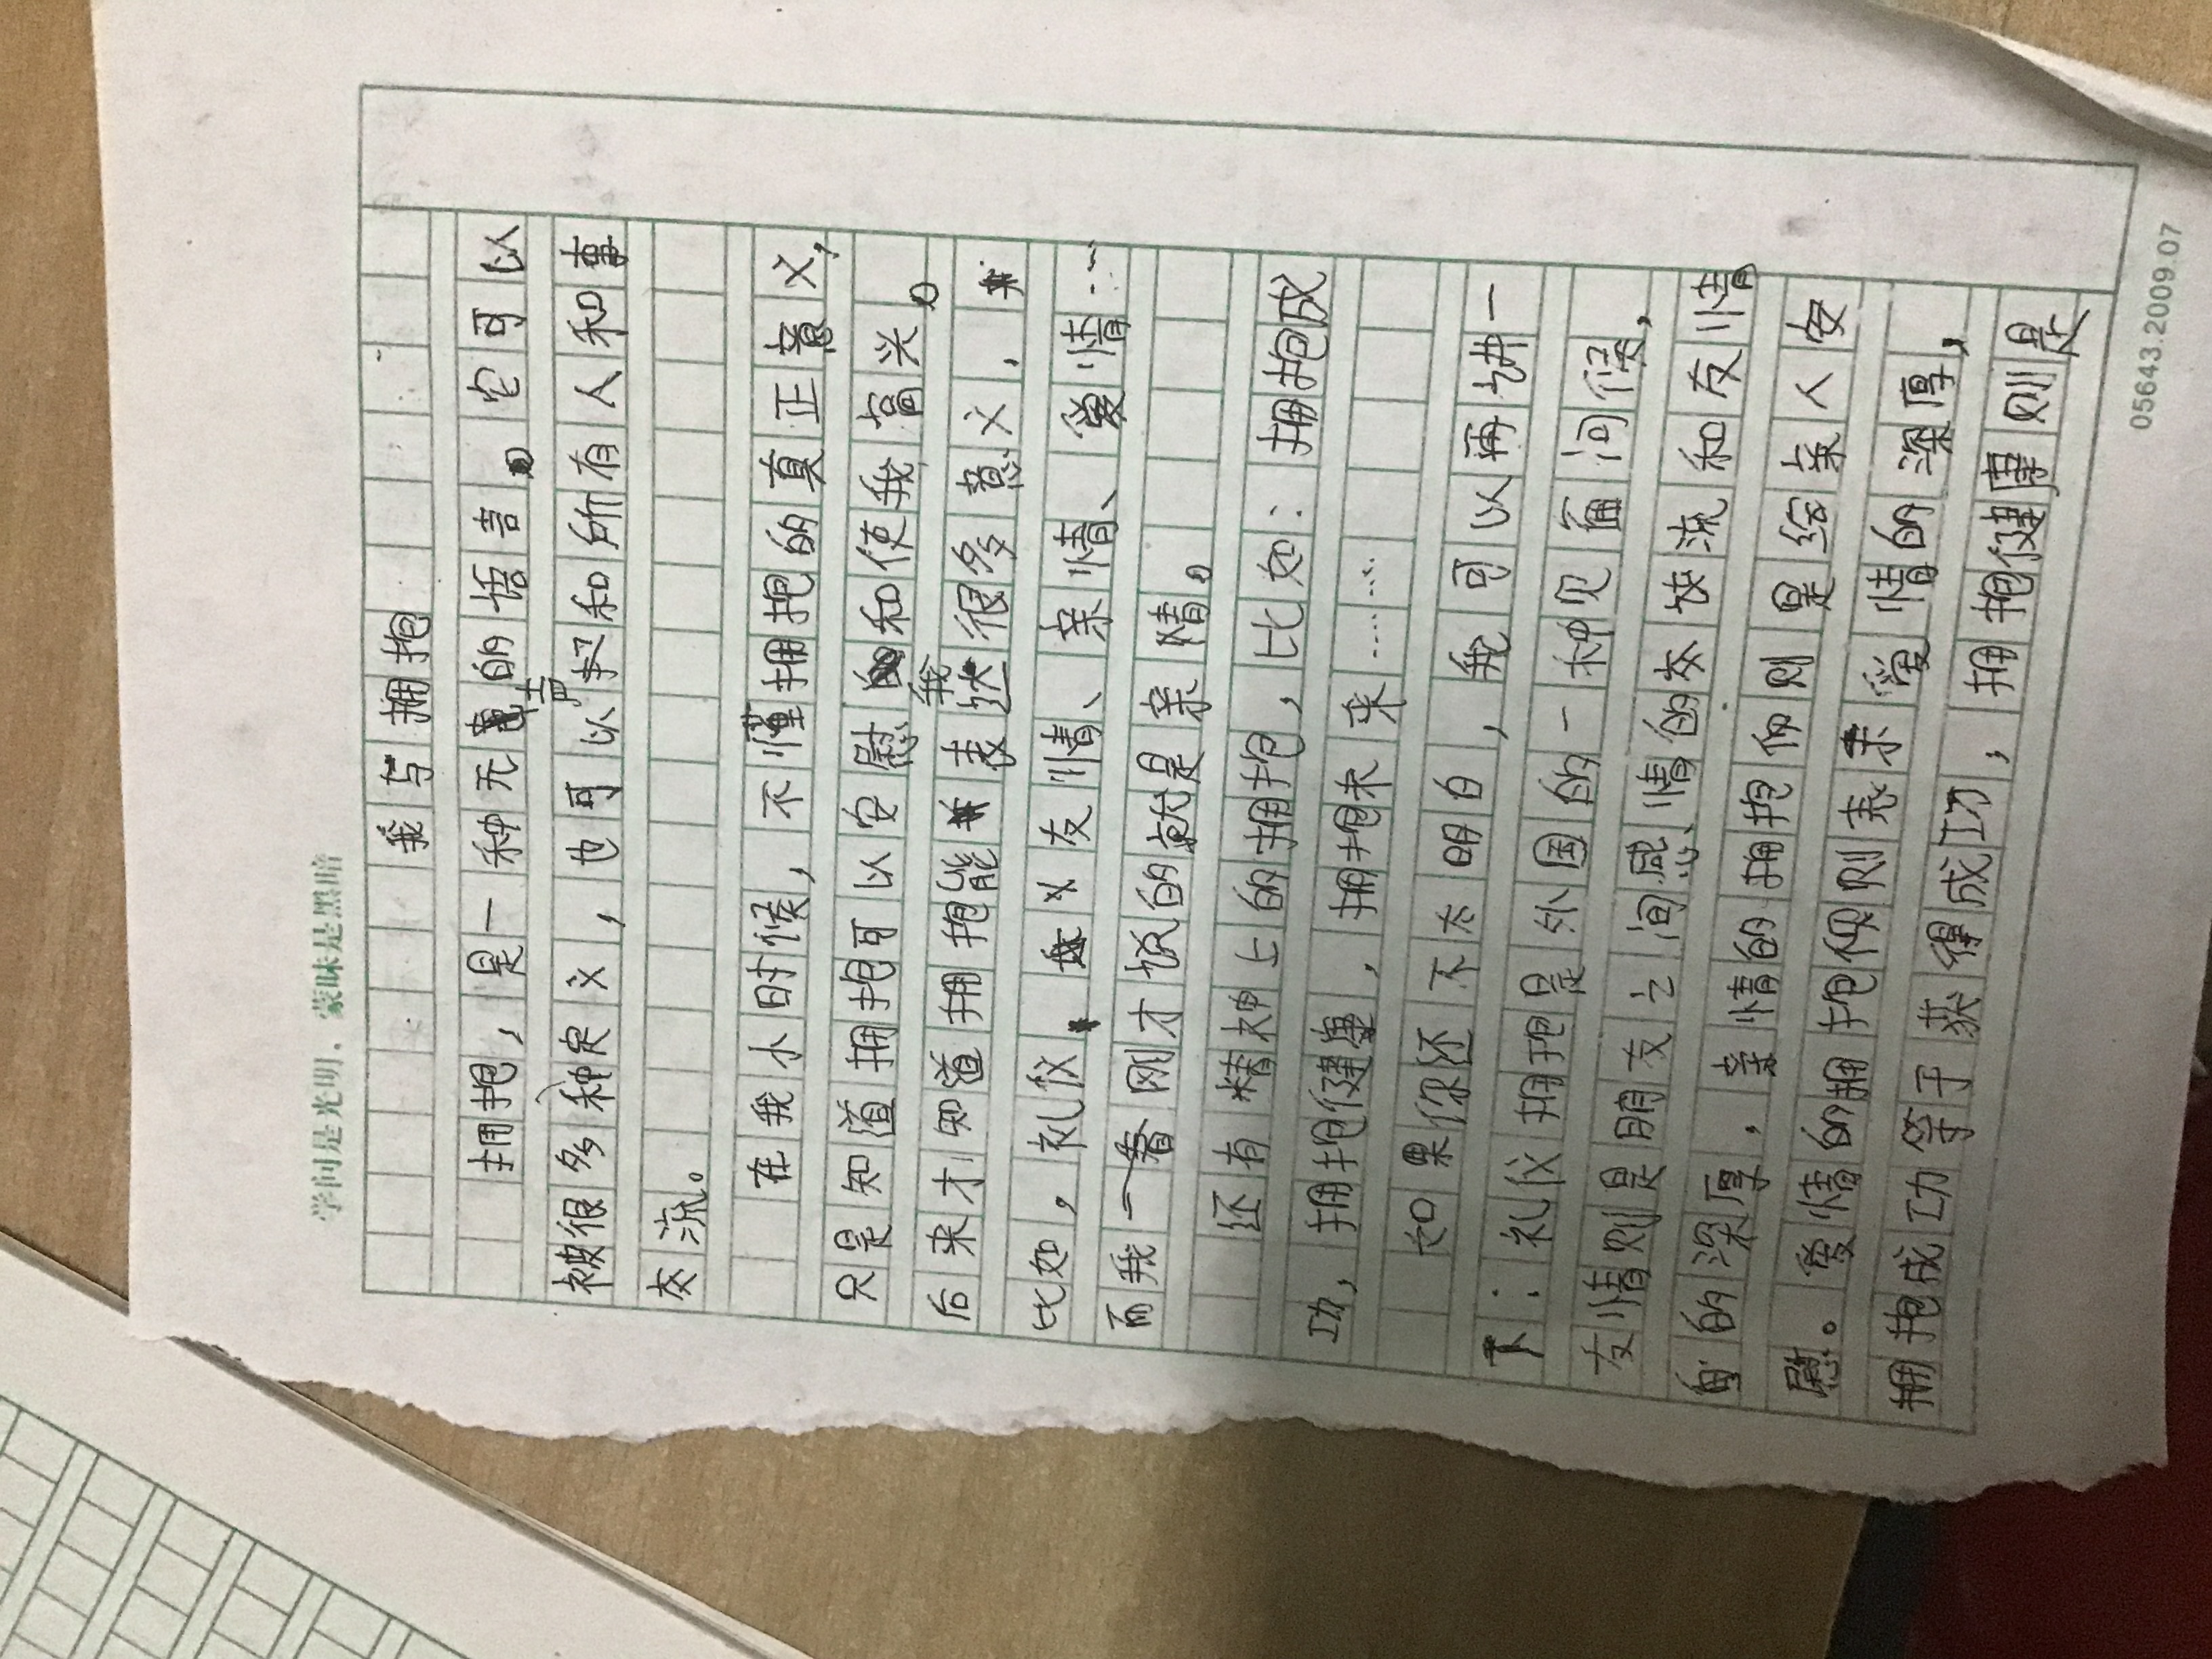 学问是光明，蒙昧是黑暗
我与拥抱
拥抱，是一种无声的语言。它可以
被很多种定义，也可以和所有人和事
交流。
在我小时候，不懂拥抱的真正意义，
只是知道拥抱可以安慰我和使我高兴。
后来才知道拥抱能表达很多意义，
比如，礼仪，友情、亲情、爱情……
而我一看刚才说的就是亲情。
还有精神上的拥抱，比如：拥抱成
功，拥抱健康，拥抱未来………
如果你还不太明白，我可以再讲一
下：礼仪拥抱是外国的一种见面问候，
友情则是朋友之间感情的交流和友情
的深厚，亲情的拥抱则是给亲人安
慰。爱情的拥抱则表示爱情的深厚，
拥抱成功等于获得成功，拥抱健康则是
05643.2009.07